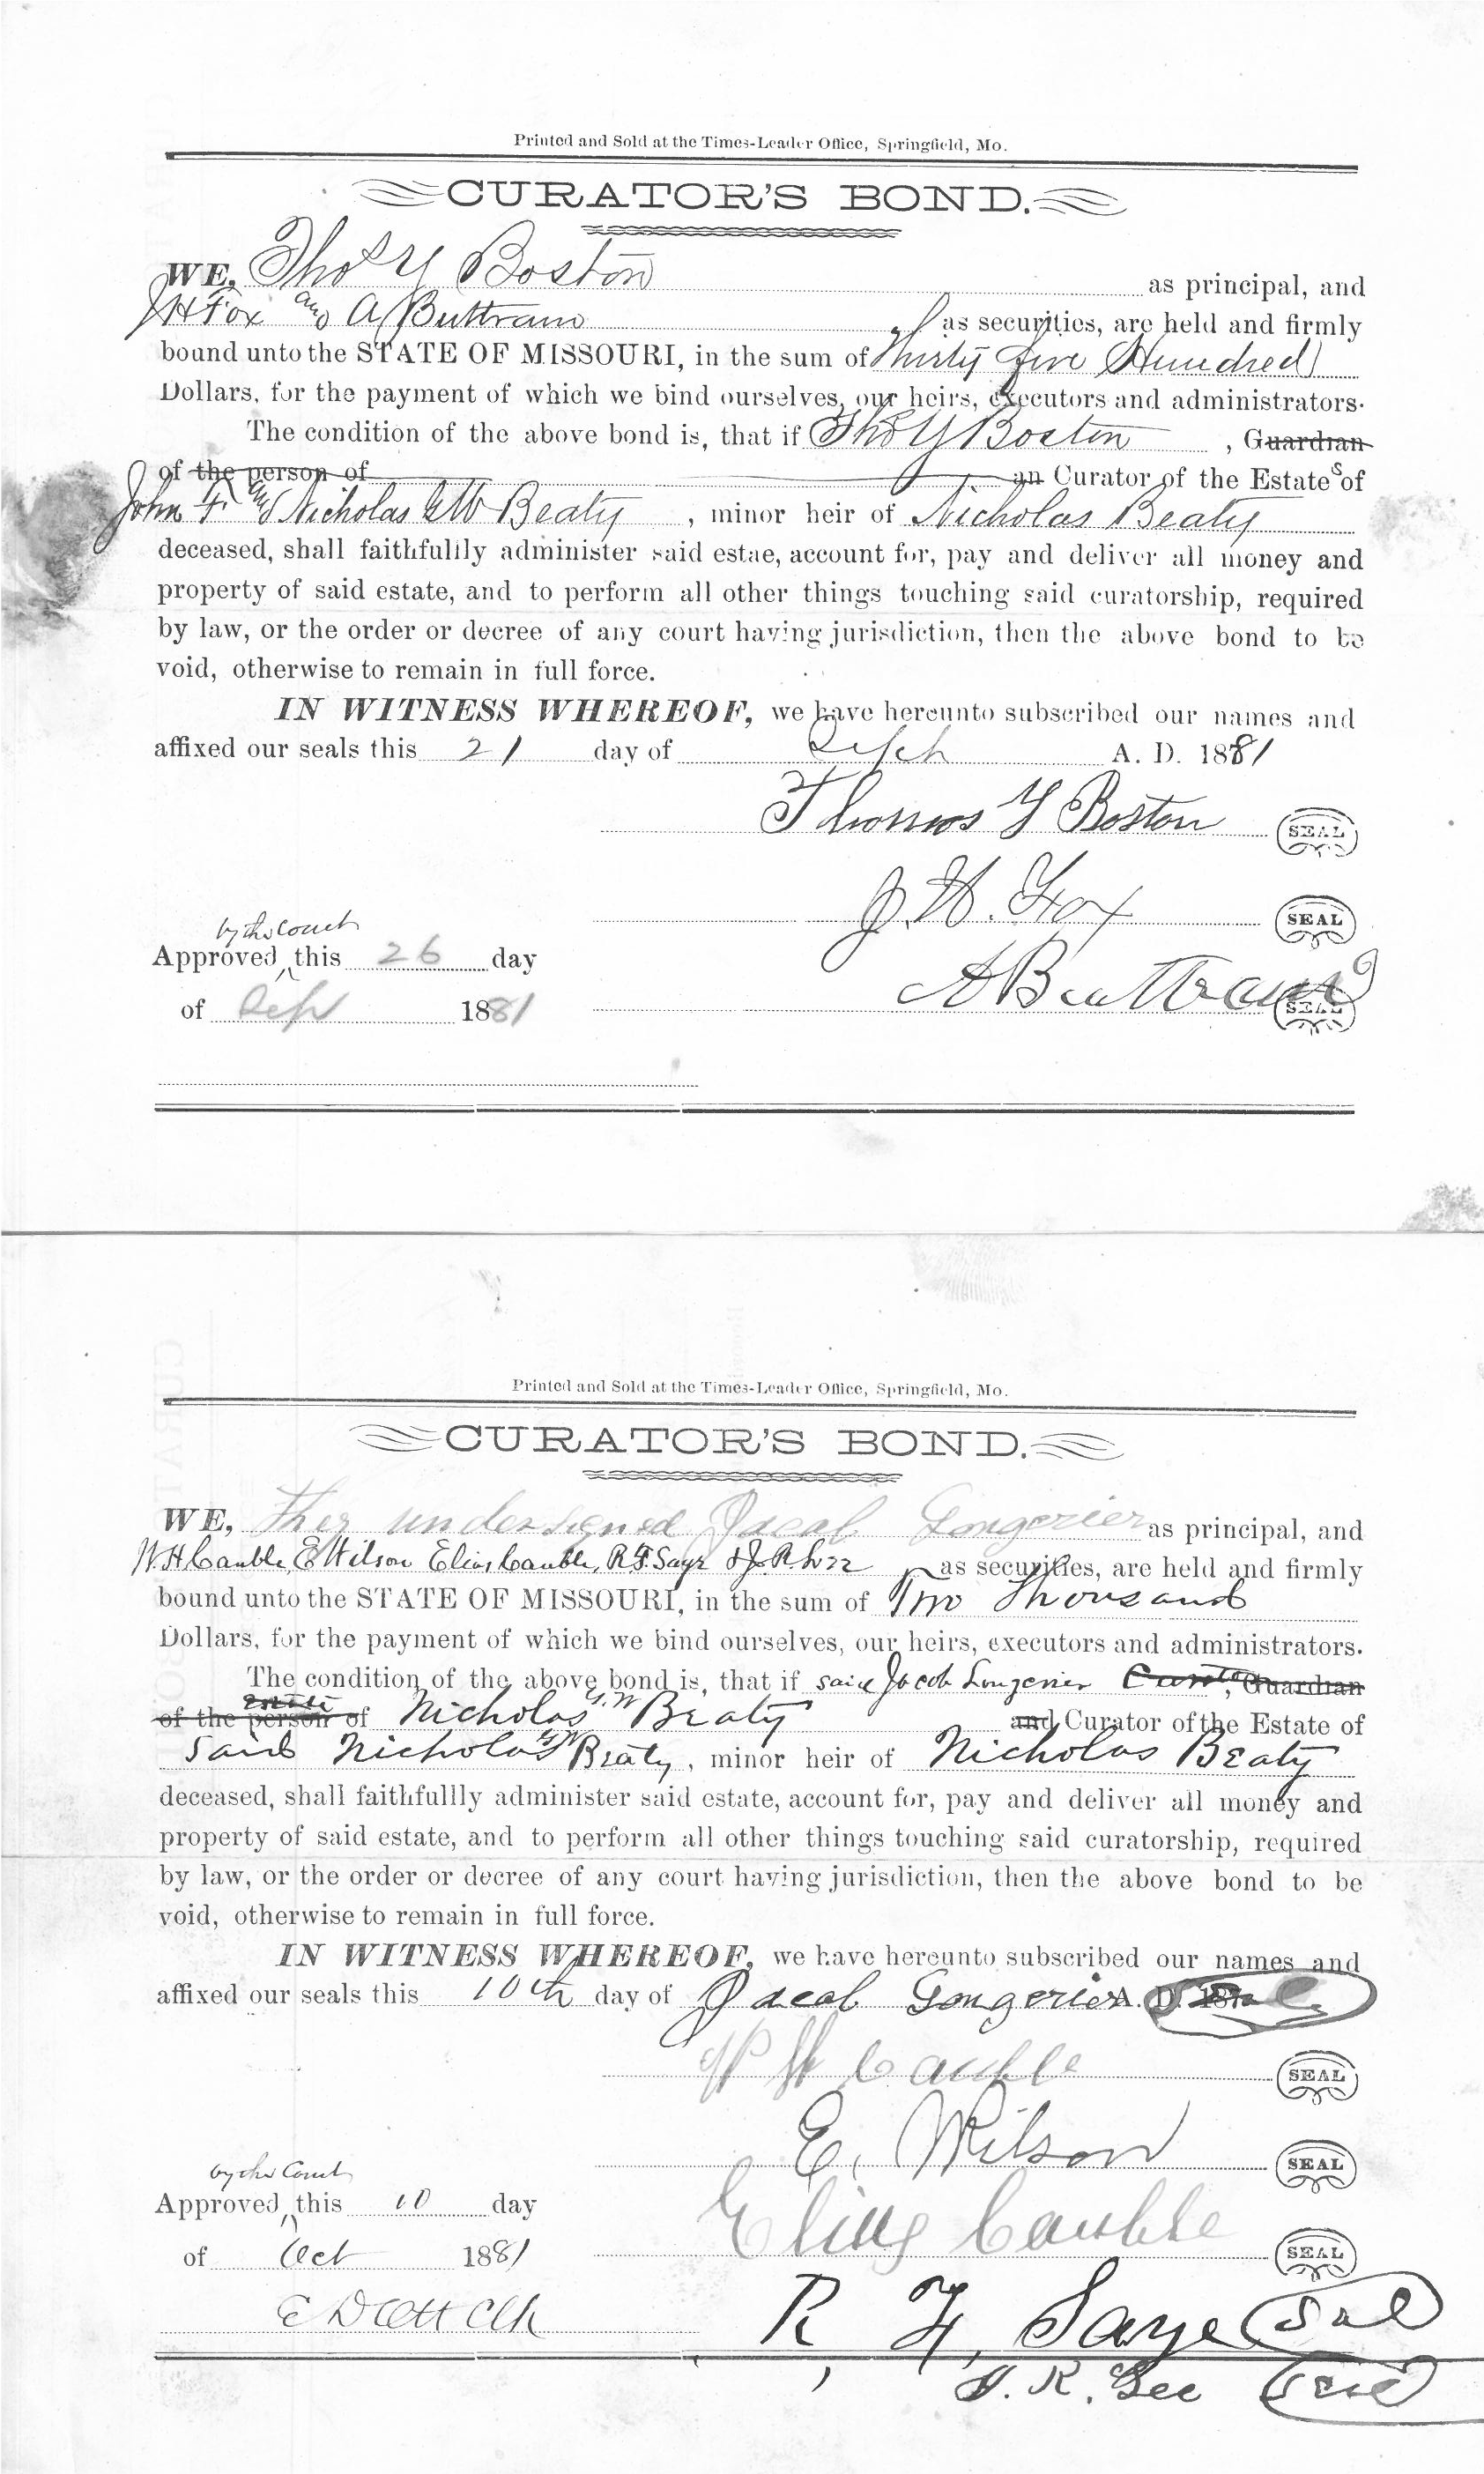 Printed and Sold at the Times-Leader Office, Springfield, Mo.
CURATOR'S BOND.
WE, Thos Y Boston as principal, and
J H Fox and A Buttram as securities, are held and firmly
bound unto the STATE OF MISSOURI, in the sum of Thirty five Hundred
Dollars, for the payment of which we bind ourselves, our heirs, executors and administrators.
The condition of the above bond is, that if Thos Y Boston , Guardian
of the person of an Curator of the Estates of
John F. and Nicholas G W Beaty , minor heir of Nicholas Beaty
deceased, shall faithfullly administer said estae, account for, pay and deliver all money and
property of said estate, and to perform all other things touching said curatorship, required
by law, or the order or decree of any court having jurisdiction, then the above bond to be
void, otherwise to remain in full force.
IN WITNESS WHEREOF, we have hereunto subscribed our names and
affixed our seals this 21 day of Sept A. D. 1881
Thomas Y Boston SEAL
J. H. Fox SEAL
by the Court
Approved this 26 day
A Buttram SEAL
of Sept 1881
Printed and Sold at the Times-Leader Office, Springfield, Mo.
CURATOR'S BOND.
WE, undersigned Jacob Longerier as principal, and
W. H Cauble, E Wilson Elias Cauble, R. F. Saye & J. R. as securities, are held and firmly
bound unto the STATE OF MISSOURI, in the sum of Two Thousand
Dollars, for the payment of which we bind ourselves, our heirs, executors and administrators.
The condition of the above bond is, that if said Jacob Longerier , Guardian
estate
of the person of Nicholas G. W Beaty and Curator of the Estate of
said Nicholas G W Beaty , minor heir of Nicholas Beaty
deceased, shall faithfullly administer said estate, account for, pay and deliver all money and
property of said estate, and to perform all other things touching said curatorship, required
by law, or the order or decree of any court having jurisdiction, then the above bond to be
void, otherwise to remain in full force.
IN WITNESS WHEREOF, we have hereunto subscribed our names and
affixed our seals this 10th day of Jacob Longerier A. D. 187
W H Cauble SEAL
E. Wilson SEAL
by the Court
Approved this 10 day
Elias Cauble SEAL
of Oct 1881
E D Ott Clk
R. F. Saye Seal
J. R. Gee Seal